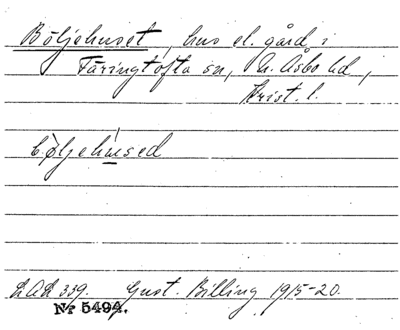 Böljehuset, hus el. gård i
Färingtofta sn, N. Åsbo hd,
Krist. l.
bøljehused
LAL 339. Gust. Billing 1915-20.
Nr 5494.